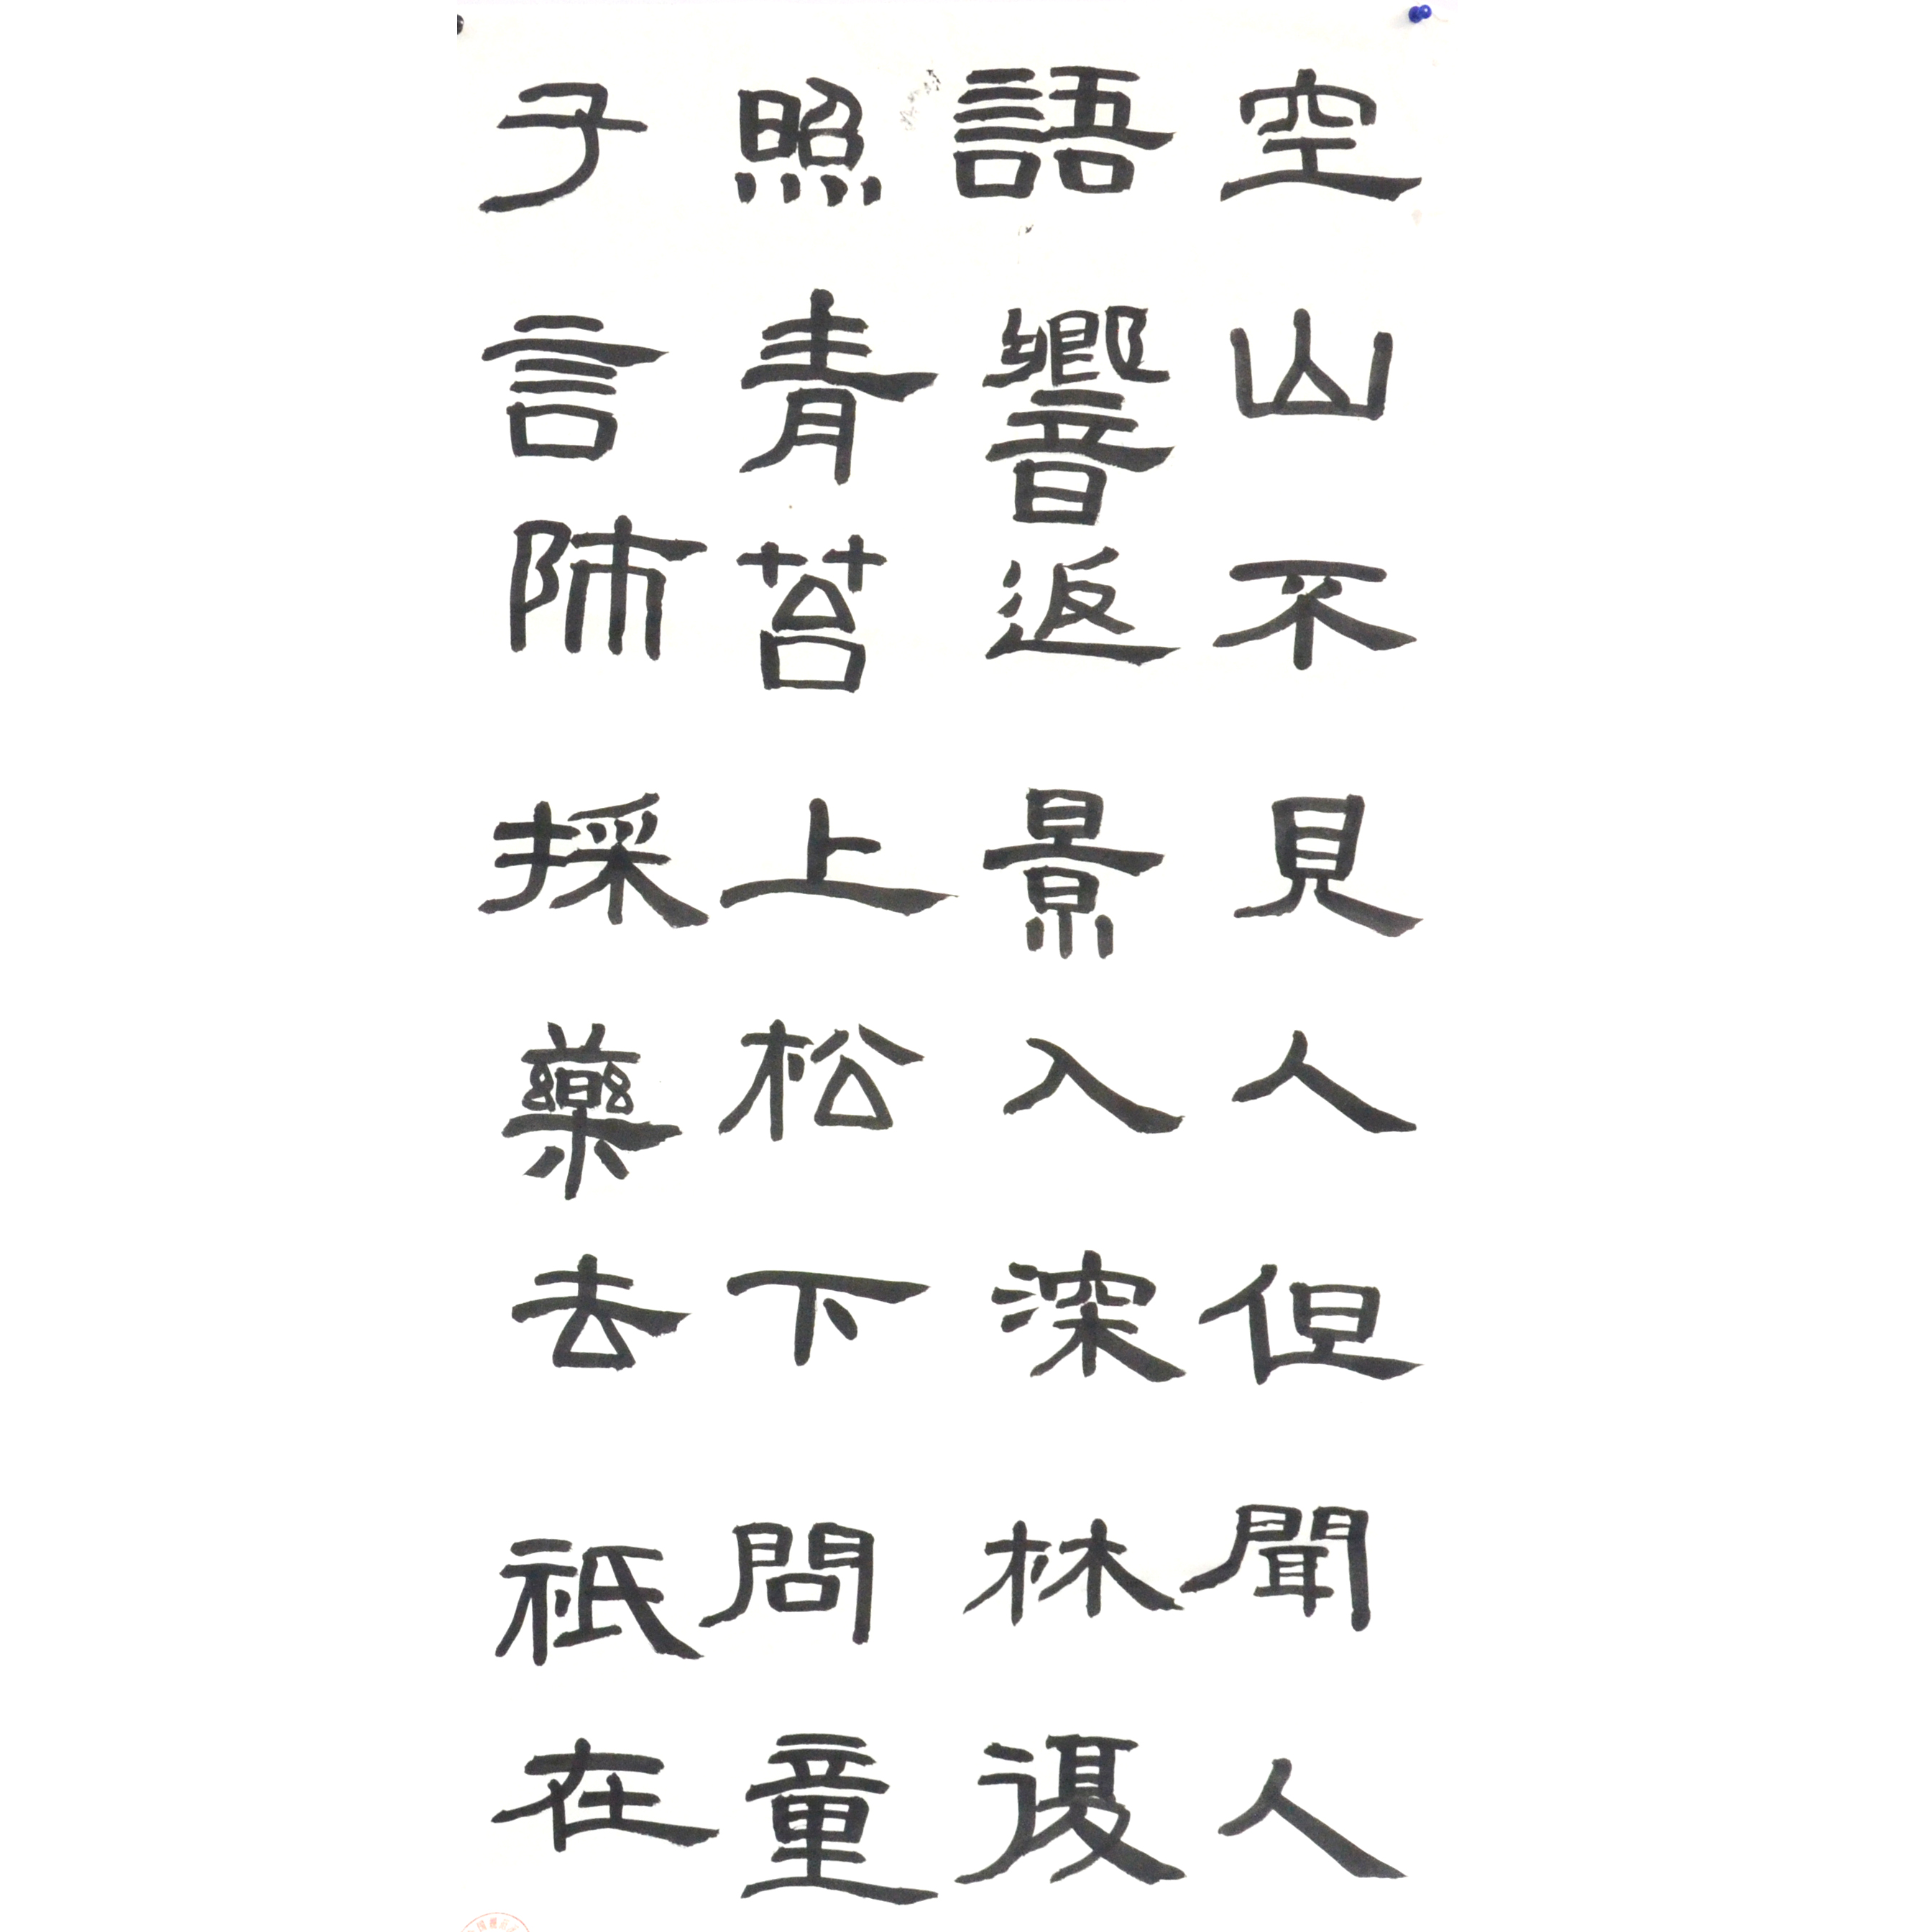 空山不見人但聞人
語響返景入深林復
照青苔上松下問童
子言師採藥去祇在